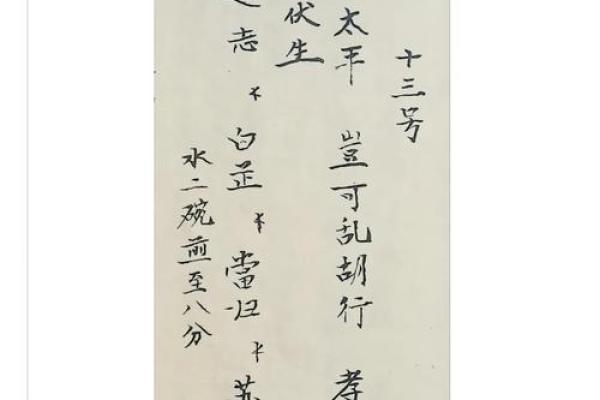 十三号
太平 豈可乱胡行 孝
伏生
志 白芷 當归 苏
水二碗煎至八分